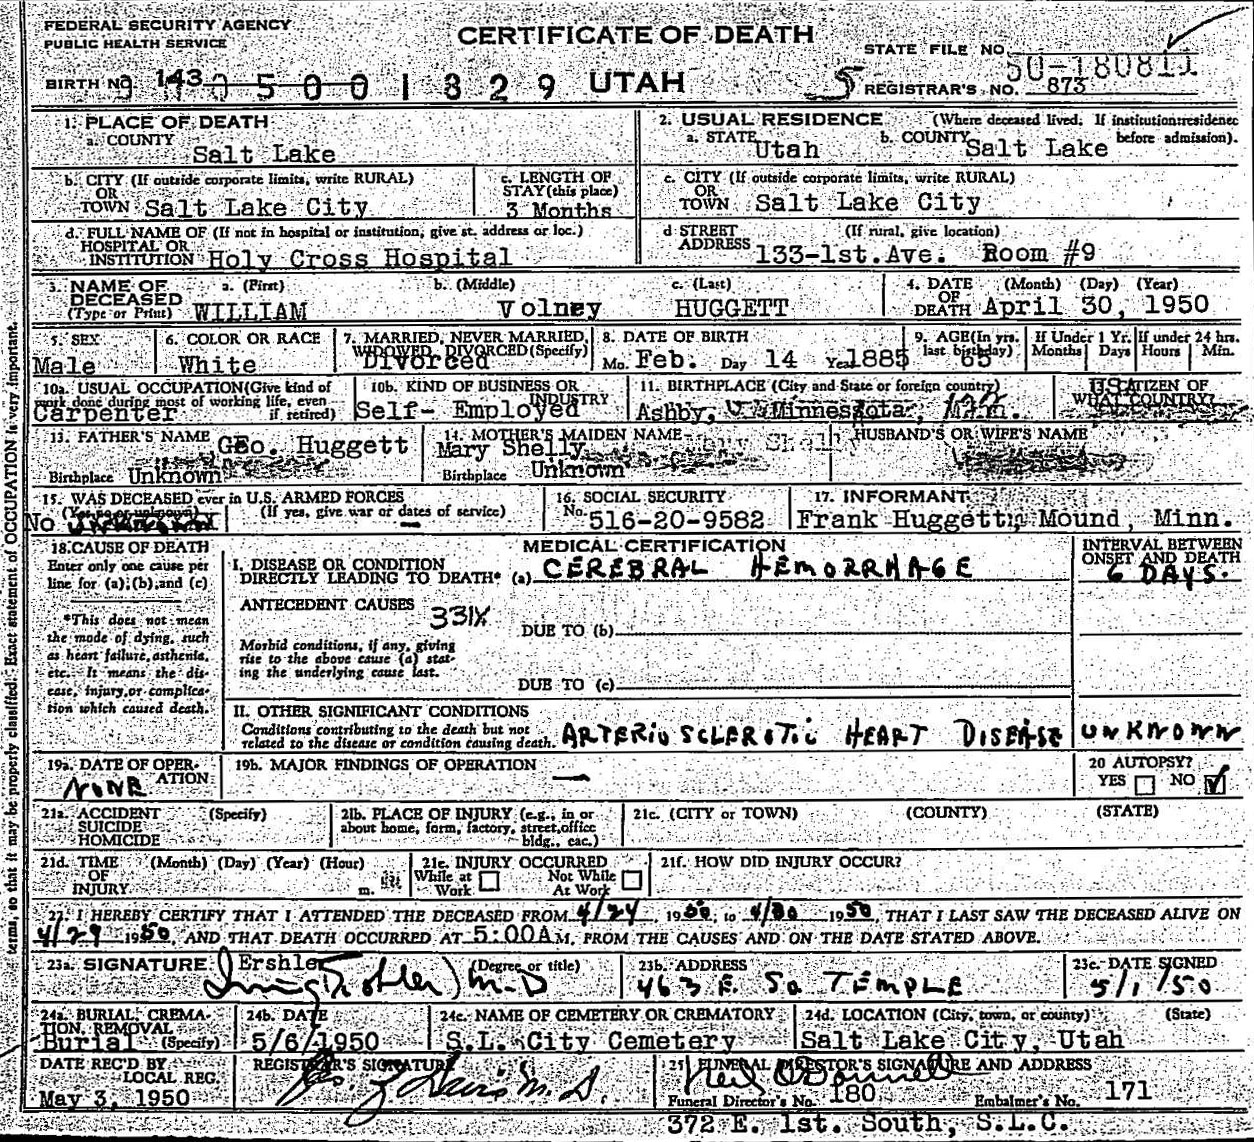 FEDERAL SECURITY AGENCY
PUBLIC HEALTH SERVICE
CERTIFICATE OF DEATH
STATE FILE NO.
50-180811
BIRTH NO. 143
0 5 0 0 1 3 2 9 UTAH
5 REGISTRAR'S NO. 873
1. PLACE OF DEATH
a. COUNTY
Salt Lake
2. USUAL RESIDENCE (Where deceased lived. If institution: residence before admission).
a. STATE Utah b. COUNTY Salt Lake
b. CITY (If outside corporate limits, write RURAL)
OR
TOWN Salt Lake City
c. LENGTH OF
STAY (this place)
3 Months
c. CITY (If outside corporate limits, write RURAL)
OR
TOWN Salt Lake City
d. FULL NAME OF (If not in hospital or institution, give st. address or loc.)
HOSPITAL OR
INSTITUTION Holy Cross Hospital
d STREET (If rural, give location)
ADDRESS 133-1st. Ave. Room #9
3. NAME OF DECEASED
(Type or Print)
a. (First) b. (Middle) c. (Last)
WILLIAM Volney HUGGETT
4. DATE OF DEATH (Month) (Day) (Year)
April 30, 1950
5. SEX
Male
6. COLOR OR RACE
White
7. MARRIED, NEVER MARRIED,
WIDOWED, DIVORCED (Specify)
Divorced
8. DATE OF BIRTH
Mo. Feb. Day 14 Yr. 1885
9. AGE (In yrs. last birthday)
65
If Under 1 Yr. If under 24 hrs.
Months Days Hours Min.
10a. USUAL OCCUPATION (Give kind of
work done during most of working life, even
if retired)
Carpenter
10b. KIND OF BUSINESS OR
INDUSTRY
Self- Employed
11. BIRTHPLACE (City and State or foreign country)
Ashby, Minnesota,
CITIZEN OF
WHAT COUNTRY?
13. FATHER'S NAME GEo. Huggett
Birthplace Unknown
14. MOTHER'S MAIDEN NAME
Mary Shelly
Birthplace Unknown
HUSBAND'S OR WIFE'S NAME
15. WAS DECEASED ever in U.S. ARMED FORCES
(Yes, no or unknown) (If yes, give war or dates of service)
No —
16. SOCIAL SECURITY
No. 516-20-9582
17. INFORMANT
Frank Huggett, Mound, Minn.
18. CAUSE OF DEATH
Enter only one cause per
line for (a), (b), and (c)
*This does not mean
the mode of dying, such
as heart failure, asthenia,
etc. It means the dis-
ease, injury, or complica-
tion which caused death.
MEDICAL CERTIFICATION
I. DISEASE OR CONDITION
DIRECTLY LEADING TO DEATH* (a) CEREBRAL HEMORRHAGE
INTERVAL BETWEEN
ONSET AND DEATH
6 DAYS.
ANTECEDENT CAUSES 331X
DUE TO (b)
Morbid conditions, if any, giving
rise to the above cause (a) stat-
ing the underlying cause last.
DUE TO (c)
II. OTHER SIGNIFICANT CONDITIONS
Conditions contributing to the death but not
related to the disease or condition causing death.
ARTERIOSCLEROTIC HEART DISEASE UNKNOWN
19a. DATE OF OPER-
ATION
NONE
19b. MAJOR FINDINGS OF OPERATION —
20 AUTOPSY?
YES NO ✓
21a. ACCIDENT (Specify)
SUICIDE
HOMICIDE
21b. PLACE OF INJURY (e.g., in or
about home, form, factory, street, office
bldg., eac.)
21c. (CITY or TOWN) (COUNTY) (STATE)
21d. TIME (Month) (Day) (Year) (Hour)
OF
INJURY m.
21e. INJURY OCCURRED
While at Work Not While At Work
21f. HOW DID INJURY OCCUR?
22. I HEREBY CERTIFY THAT I ATTENDED THE DECEASED FROM 4/24 1950, to 4/30 1950, THAT I LAST SAW THE DECEASED ALIVE ON
4/29 1950, AND THAT DEATH OCCURRED AT 5:00A M. FROM THE CAUSES AND ON THE DATE STATED ABOVE.
23a. SIGNATURE (Degree or title)
Ershler
Irving Ershler M.D
23b. ADDRESS
463 E. So TEMPLE
23c. DATE SIGNED
5/1/50
24a. BURIAL, CREMA-
TION, REMOVAL
(Specify)
Burial
24b. DATE
5/6/1950
24c. NAME OF CEMETERY OR CREMATORY
S.L. City Cemetery
24d. LOCATION (City, town, or county) (State)
Salt Lake City, Utah
DATE REC'D BY
LOCAL REG.
May 3, 1950
REGISTRAR'S SIGNATURE
M.D.
25. FUNERAL DIRECTOR'S SIGNATURE AND ADDRESS
Neil O'Donnell
Funeral Director's No. 180 Embalmer's No. 171
372 E. 1st. South, S.L.C.
terms, so that it may be properly classified. Exact statement of OCCUPATION is very important.